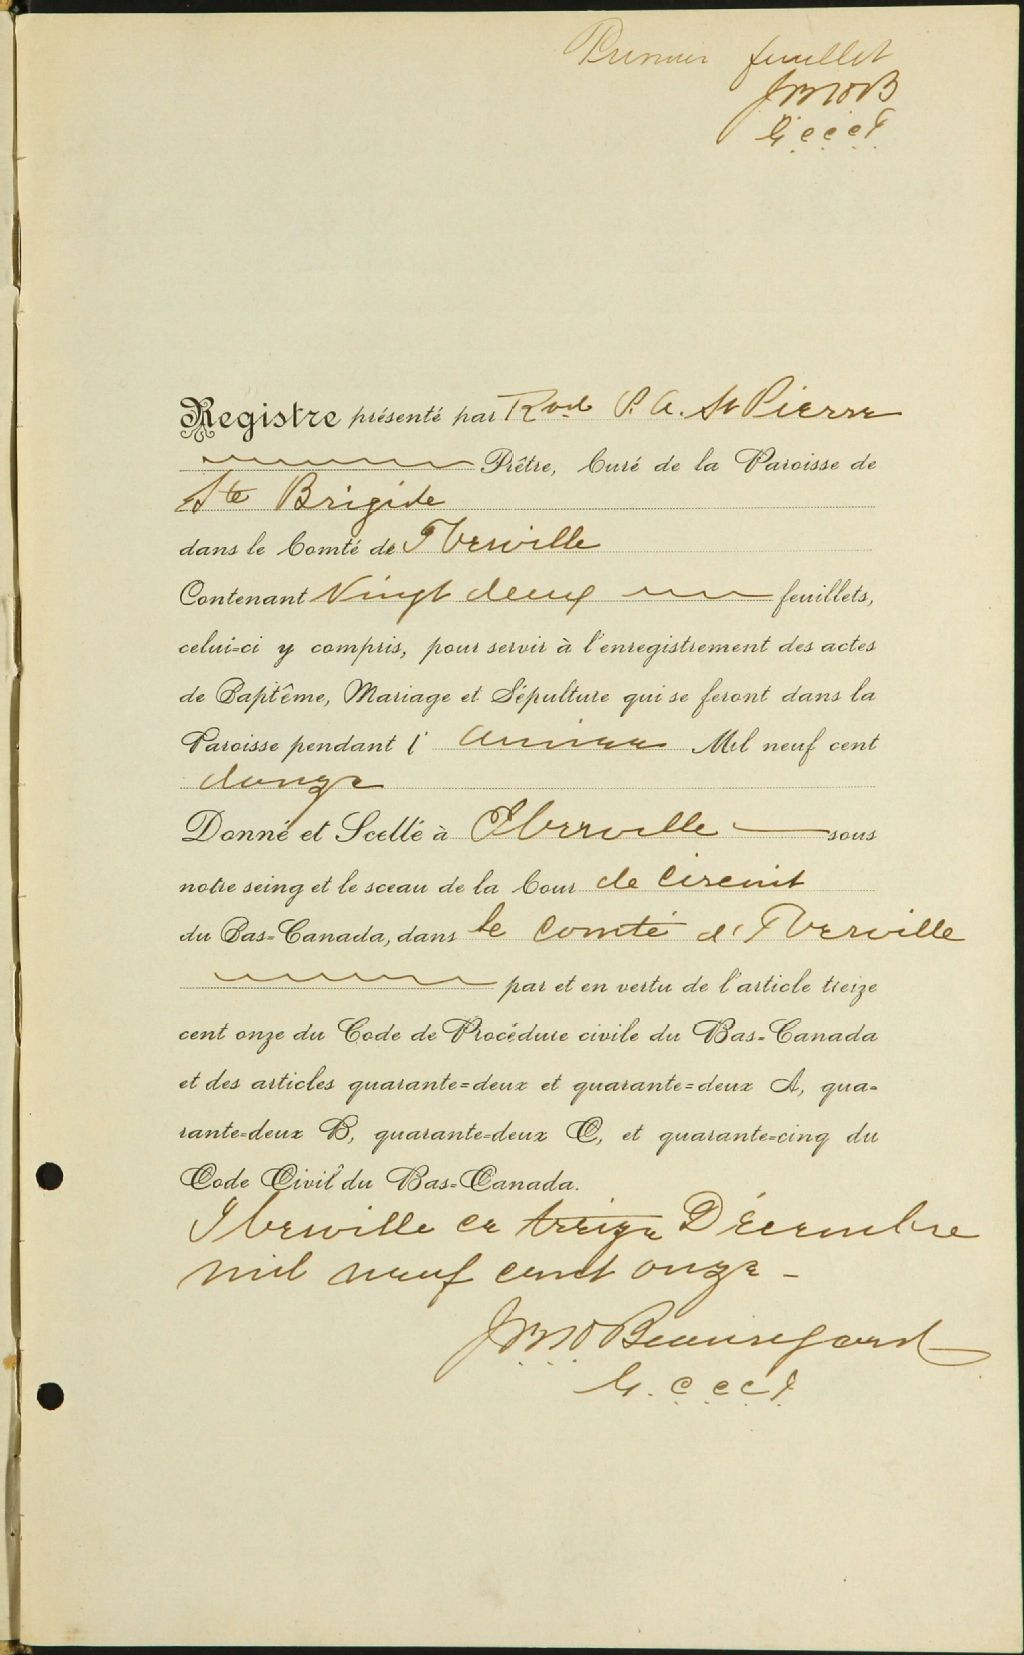 Premier feuillet
JBNOB
G.C.C.C.I.
Registre présenté par Rvd P. A. St Pierre
Prêtre, Curé de la Paroisse de
Ste Brigide
dans le Comté de Iberville
Contenant Vingt deux feuillets,
celui-ci y compris, pour servir à l'enregistrement des actes
de Baptême, Mariage et Sépulture qui se feront dans la
Paroisse pendant l'année Mil neuf cent
douze
Donné et Scellé à Iberville sous
notre seing et le sceau de la Cour de Circuit
du Bas-Canada, dans le Comté d'Iberville
par et en vertu de l'article treize
cent onze du Code de Procédure civile du Bas-Canada
et des articles quarante-deux et quarante-deux A, qua-
rante-deux B, quarante-deux C, et quarante-cinq du
Code Civil du Bas-Canada.
Iberville ce treize Décembre
mil neuf cent onze -
Beauregard
G.C.C.C.I.